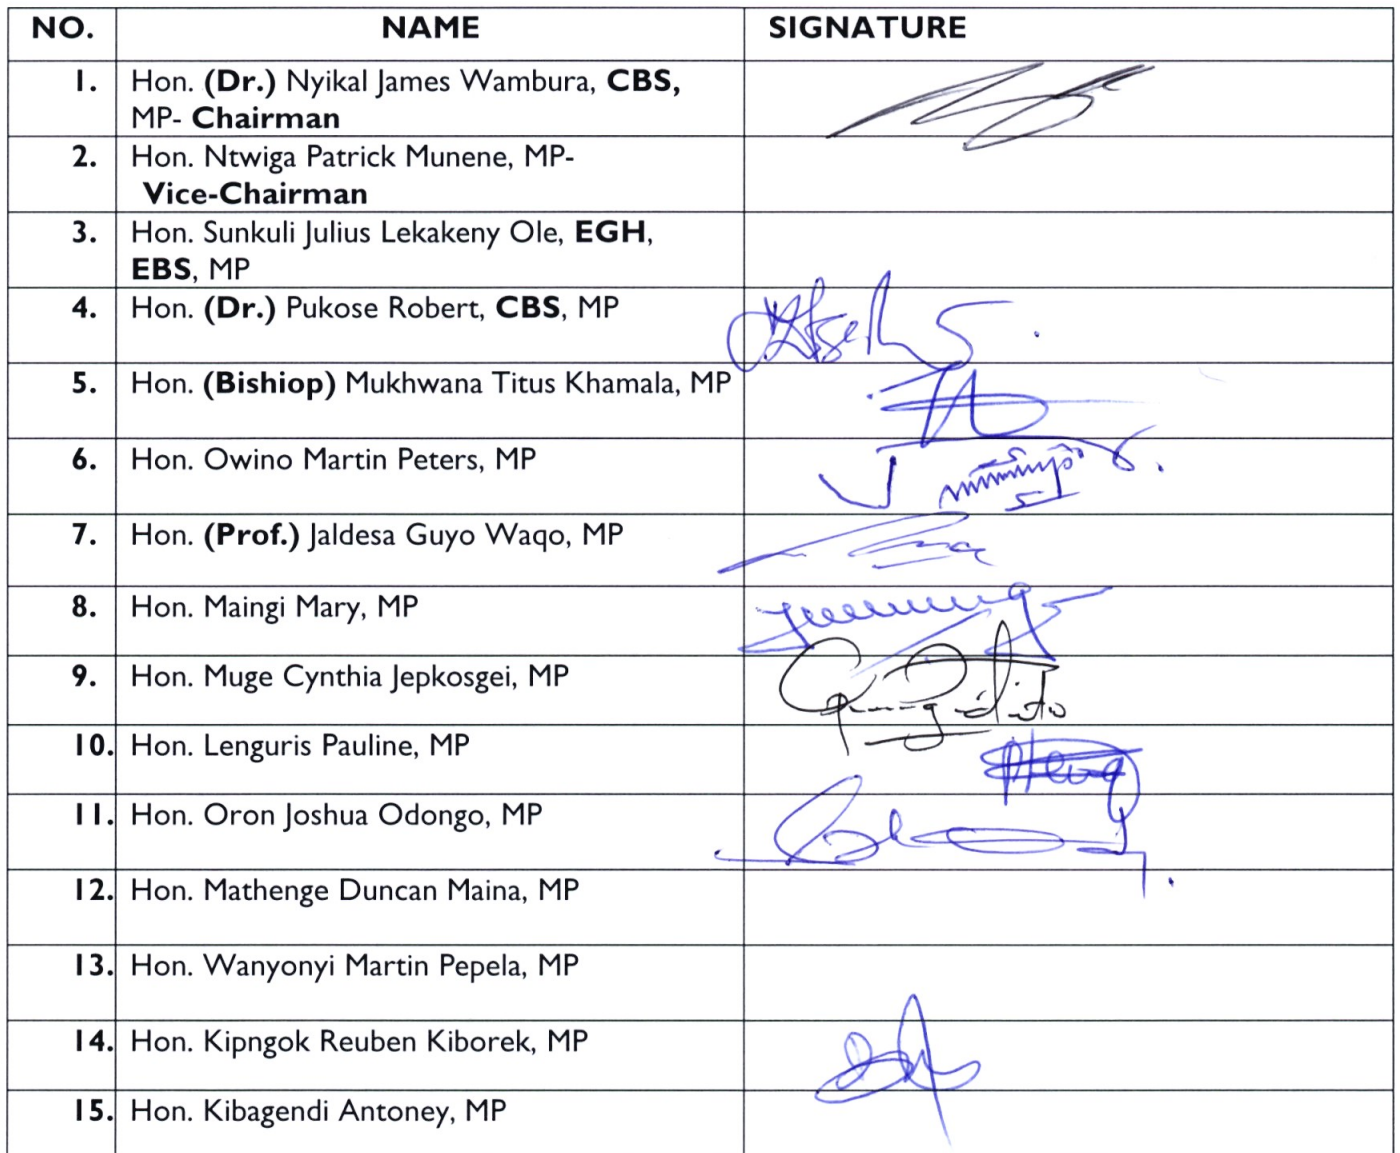 NO. NAME SIGNATURE
1. Hon. (Dr.) Nyikal James Wambura, CBS,
MP- Chairman
2. Hon. Ntwiga Patrick Munene, MP-
Vice-Chairman
3. Hon. Sunkuli Julius Lekakeny Ole, EGH,
EBS, MP
4. Hon. (Dr.) Pukose Robert, CBS, MP
5. Hon. (Bishiop) Mukhwana Titus Khamala, MP
6. Hon. Owino Martin Peters, MP
7. Hon. (Prof.) Jaldesa Guyo Waqo, MP
8. Hon. Maingi Mary, MP
9. Hon. Muge Cynthia Jepkosgei, MP
10. Hon. Lenguris Pauline, MP
11. Hon. Oron Joshua Odongo, MP
12. Hon. Mathenge Duncan Maina, MP
13. Hon. Wanyonyi Martin Pepela, MP
14. Hon. Kipngok Reuben Kiborek, MP
15. Hon. Kibagendi Antoney, MP